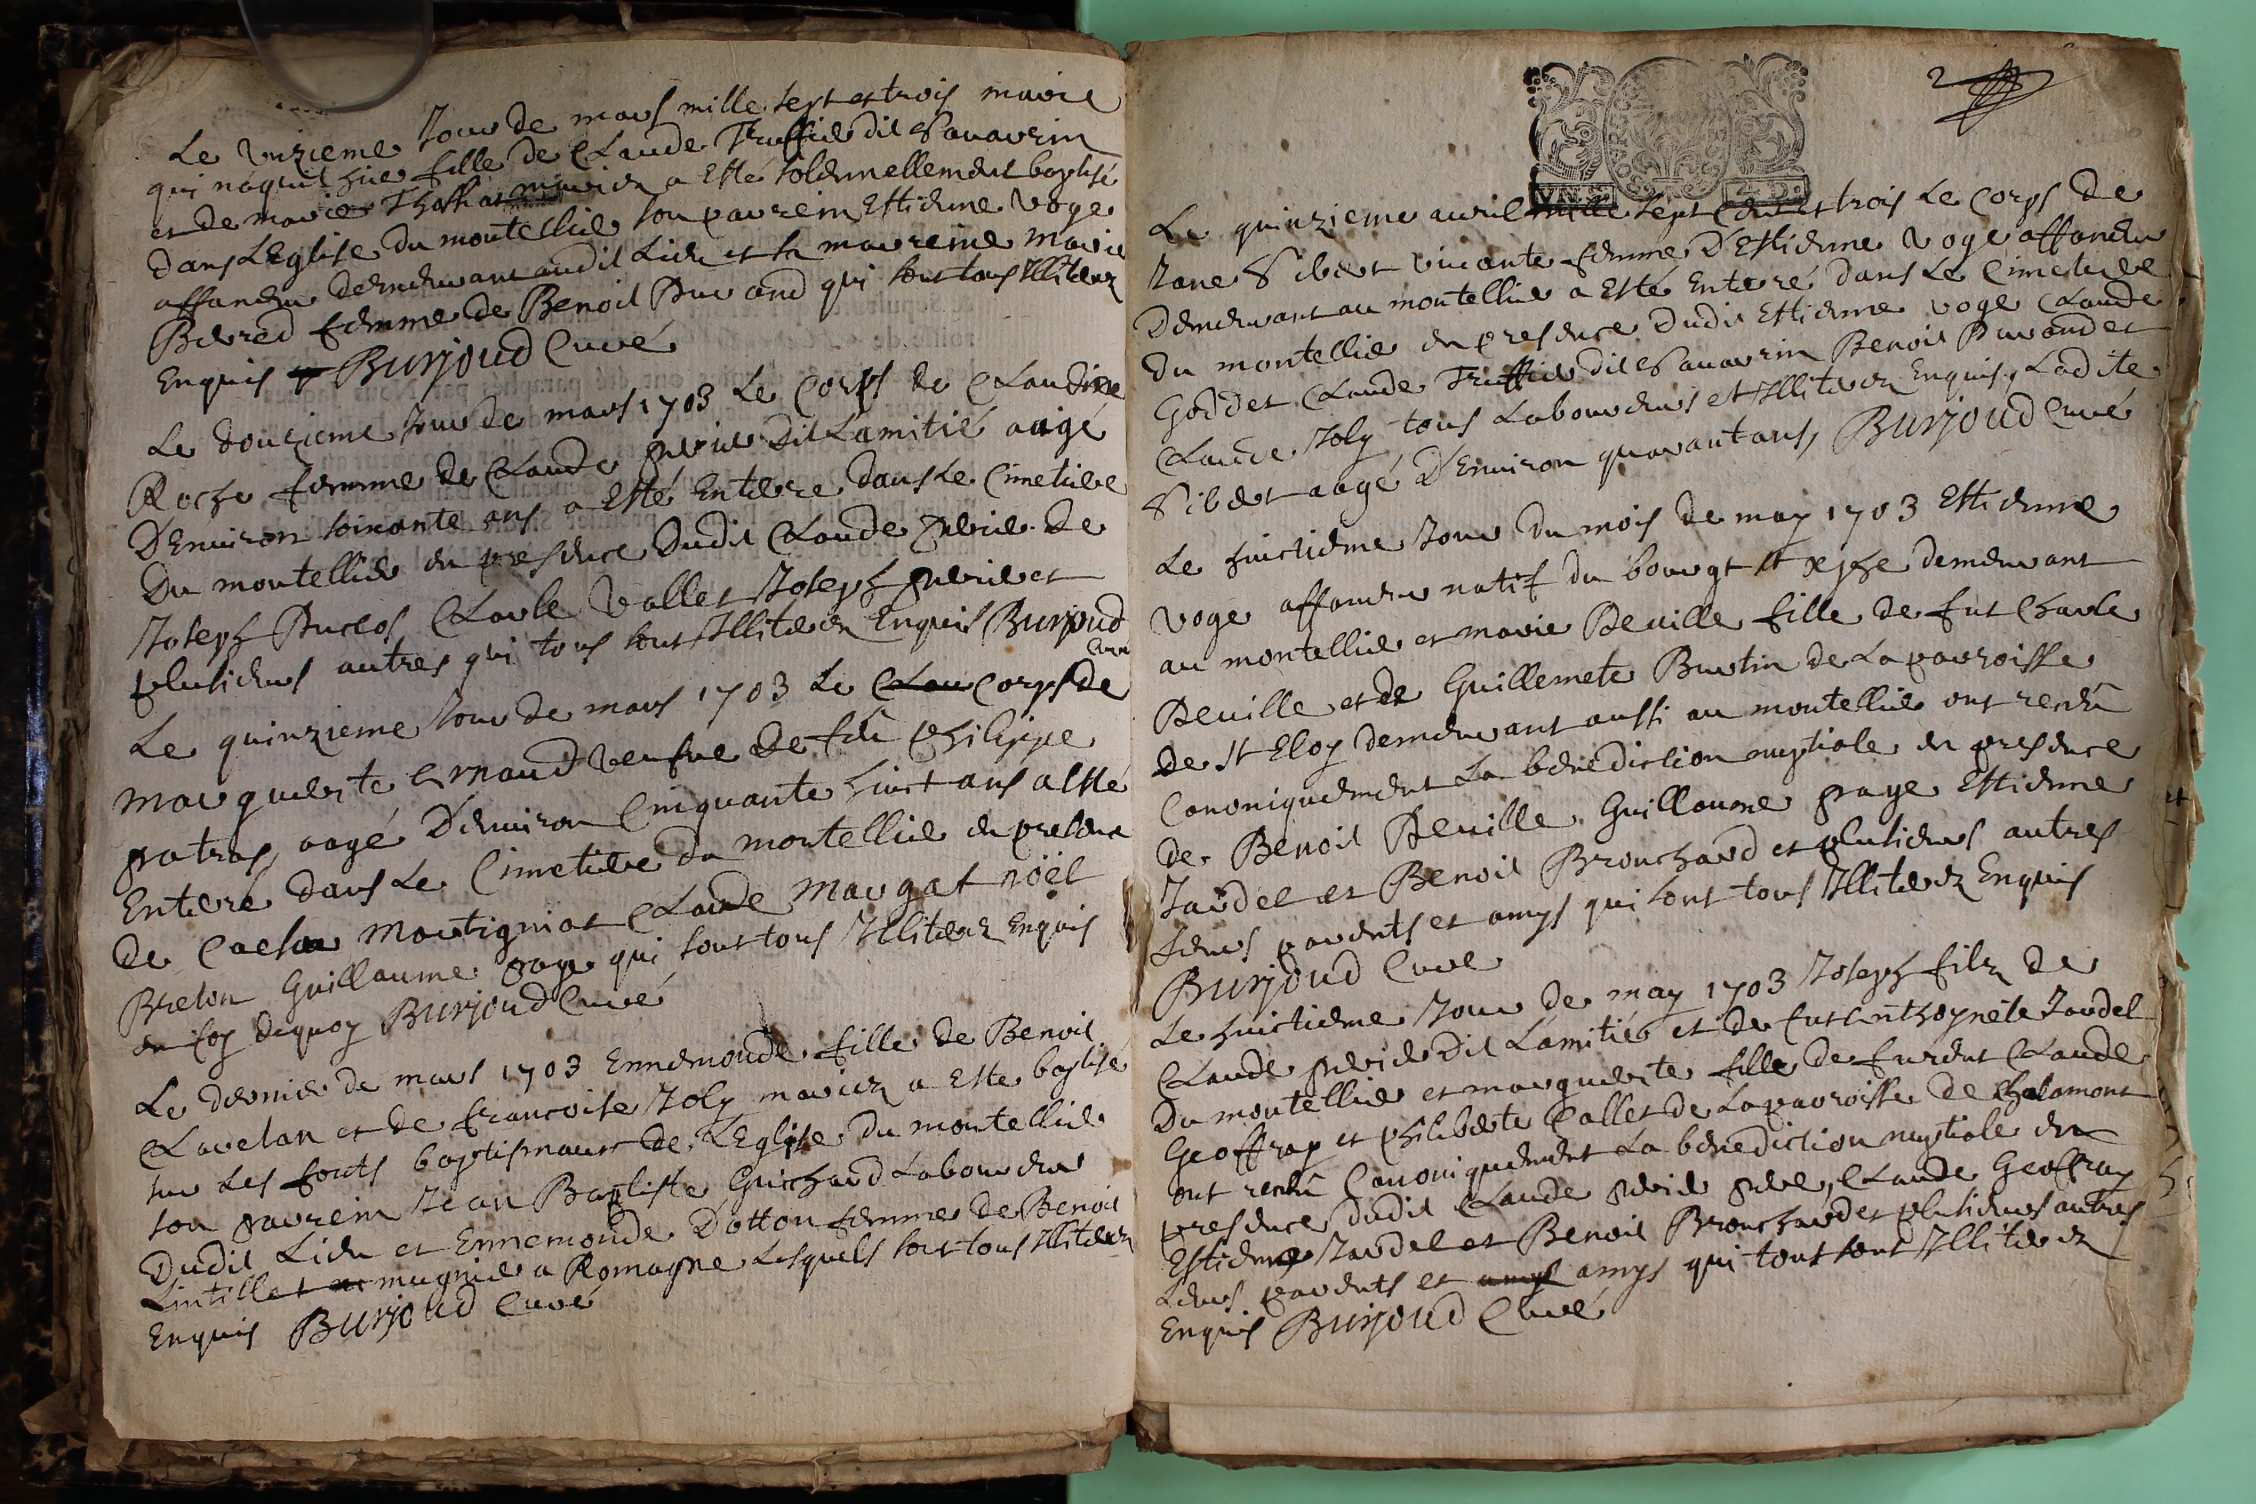 Le unzieme Jour de mars mille sept et trois marie
qui naquit hier fille de Claude Truffier dit Savarin
et de marie Thoihas mariez a Esté solennellement baptisé
dans L'Eglise du montellier son parrein Estienne Voge
affaneur demeurant audit Lieu et sa marreine marie
Berred femme de Benoit Durand qui sont tous Illiterez
Enquis Burjoud Curé
Le douzieme Jour de mars 1703 Le Corps de Claudine
Roche femme de Claude perier Dit Lamitié aagé
D'Environ soixante ans a Esté Enterré dans Le Cimetiere
Du montellier en presence Dudit Claude perier De
Joseph Duclos Charle Vallet Joseph perier et
plusieurs autres qui tous sont Illiterez Enquis Burjoud
Curé
Le quinzieme Jour de mars 1703 Le Clau Corps de
marguerite Ernaud veufve De feu philippe
patras, aagé D'environ Cinquante huict ans a Esté
Enterré dans Le Cimetiere du montellier en presence
De martigniat Claude margat noël
Breton Guillaume page qui sont tous Illiterez Enquis
en foy dequoy Burjoud Curé
Le dernier de mars 1703 Ennemonde fille de Benoit
Clavelan et de francoise Joly mariez a Este baptisé
sur Les fonts baptismaux de L'Eglise du montellier
son parrein Jean Baptiste Guichard Laboureur
Dudit Lieu et Ennemonde Dotton femme de Benoit
Lintillet mugnier a Romagne Lesquels sont tous Illiterez
Enquis Burjoud Curé
2
VN S. 4 D.
Le quinzieme avril mille sept Cent et trois Le Corps de
Jane Sibert vivante femme D'Estienne Voge affaneur
Demeurant au montellier a Esté Enterré dans Le Cimetiere
du montellier en presence Dudit Estienne voge Claude
Goddet Claude Truffier dit Savarin Benoit Durand et
Claude Joly tous Laboureurs et Illiterez Enquis, Ladite
Sibert aagé D'Environ quarant ans, Burjoud Curé
Le huictieme Jour Du mois de may 1703 Estienne
voge affaneur natif du bourgt St demeurant
au montellier et marie Deville fille de fut Charle
Deville et de Guillemete Burtin de La parroisse
de St Eloy demeurant aussi au montellier ont rendu
Canoniquement La benediction nuptiale en presence
de Benoit Deville Guillaume page Estienne
Jaudel et Benoit Brouchard et plusieurs autres
Leurs parents et amys qui sont tous Illiterez Enquis
Burjoud Curé
Le huictieme Jour de may 1703 Joseph filz de
Claude perier Dit Lamitié et de fut Jaudel
Du montellier et marguerite fille de furent Claude
Geoffray et philiberte Callet de La parroisse de Chalamont
ont rendu Canoniquement La benediction nuptiale en
presence dudit Claude perier pere, Claude Geoffray
Estienne Jaudel et Benoit Brouchard et plusieurs autres
Leurs parents et amys amys qui tous sont Illiterez
Enquis Burjoud Curé